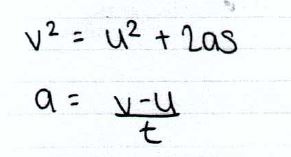 v² = u² + 2as
a = (v-u)/t